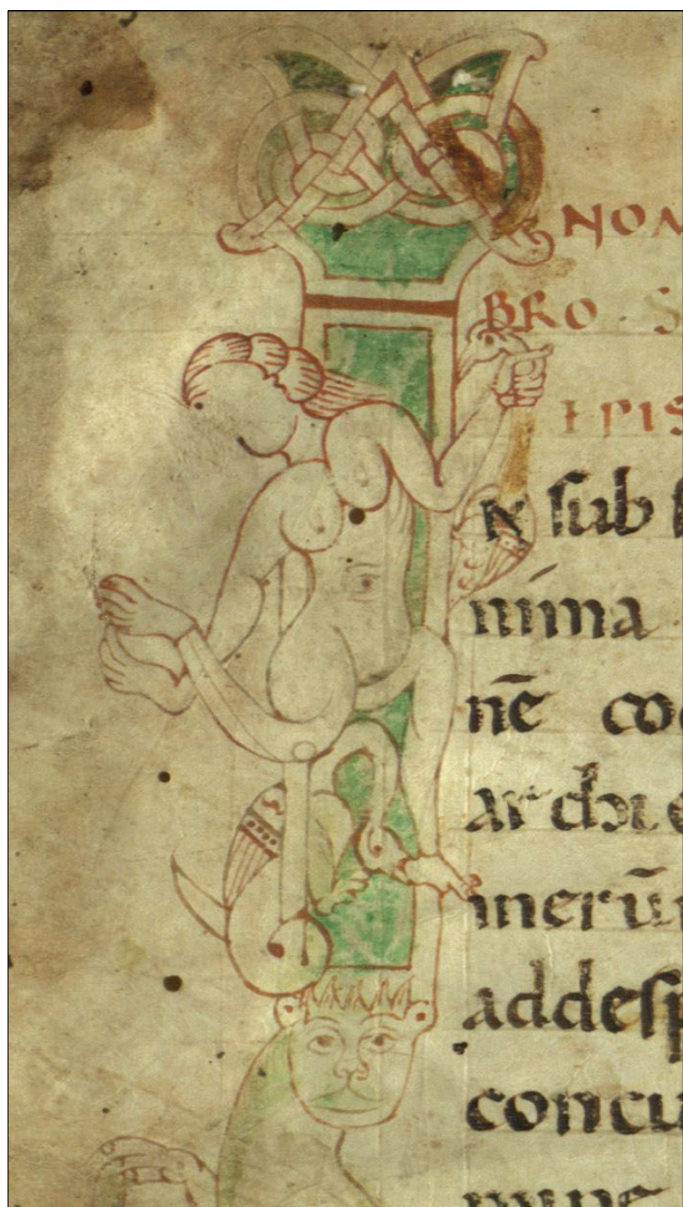 NOM
BRO S
EPIS
N sub s
nima
nē co
archie
merūn
addesp
concu